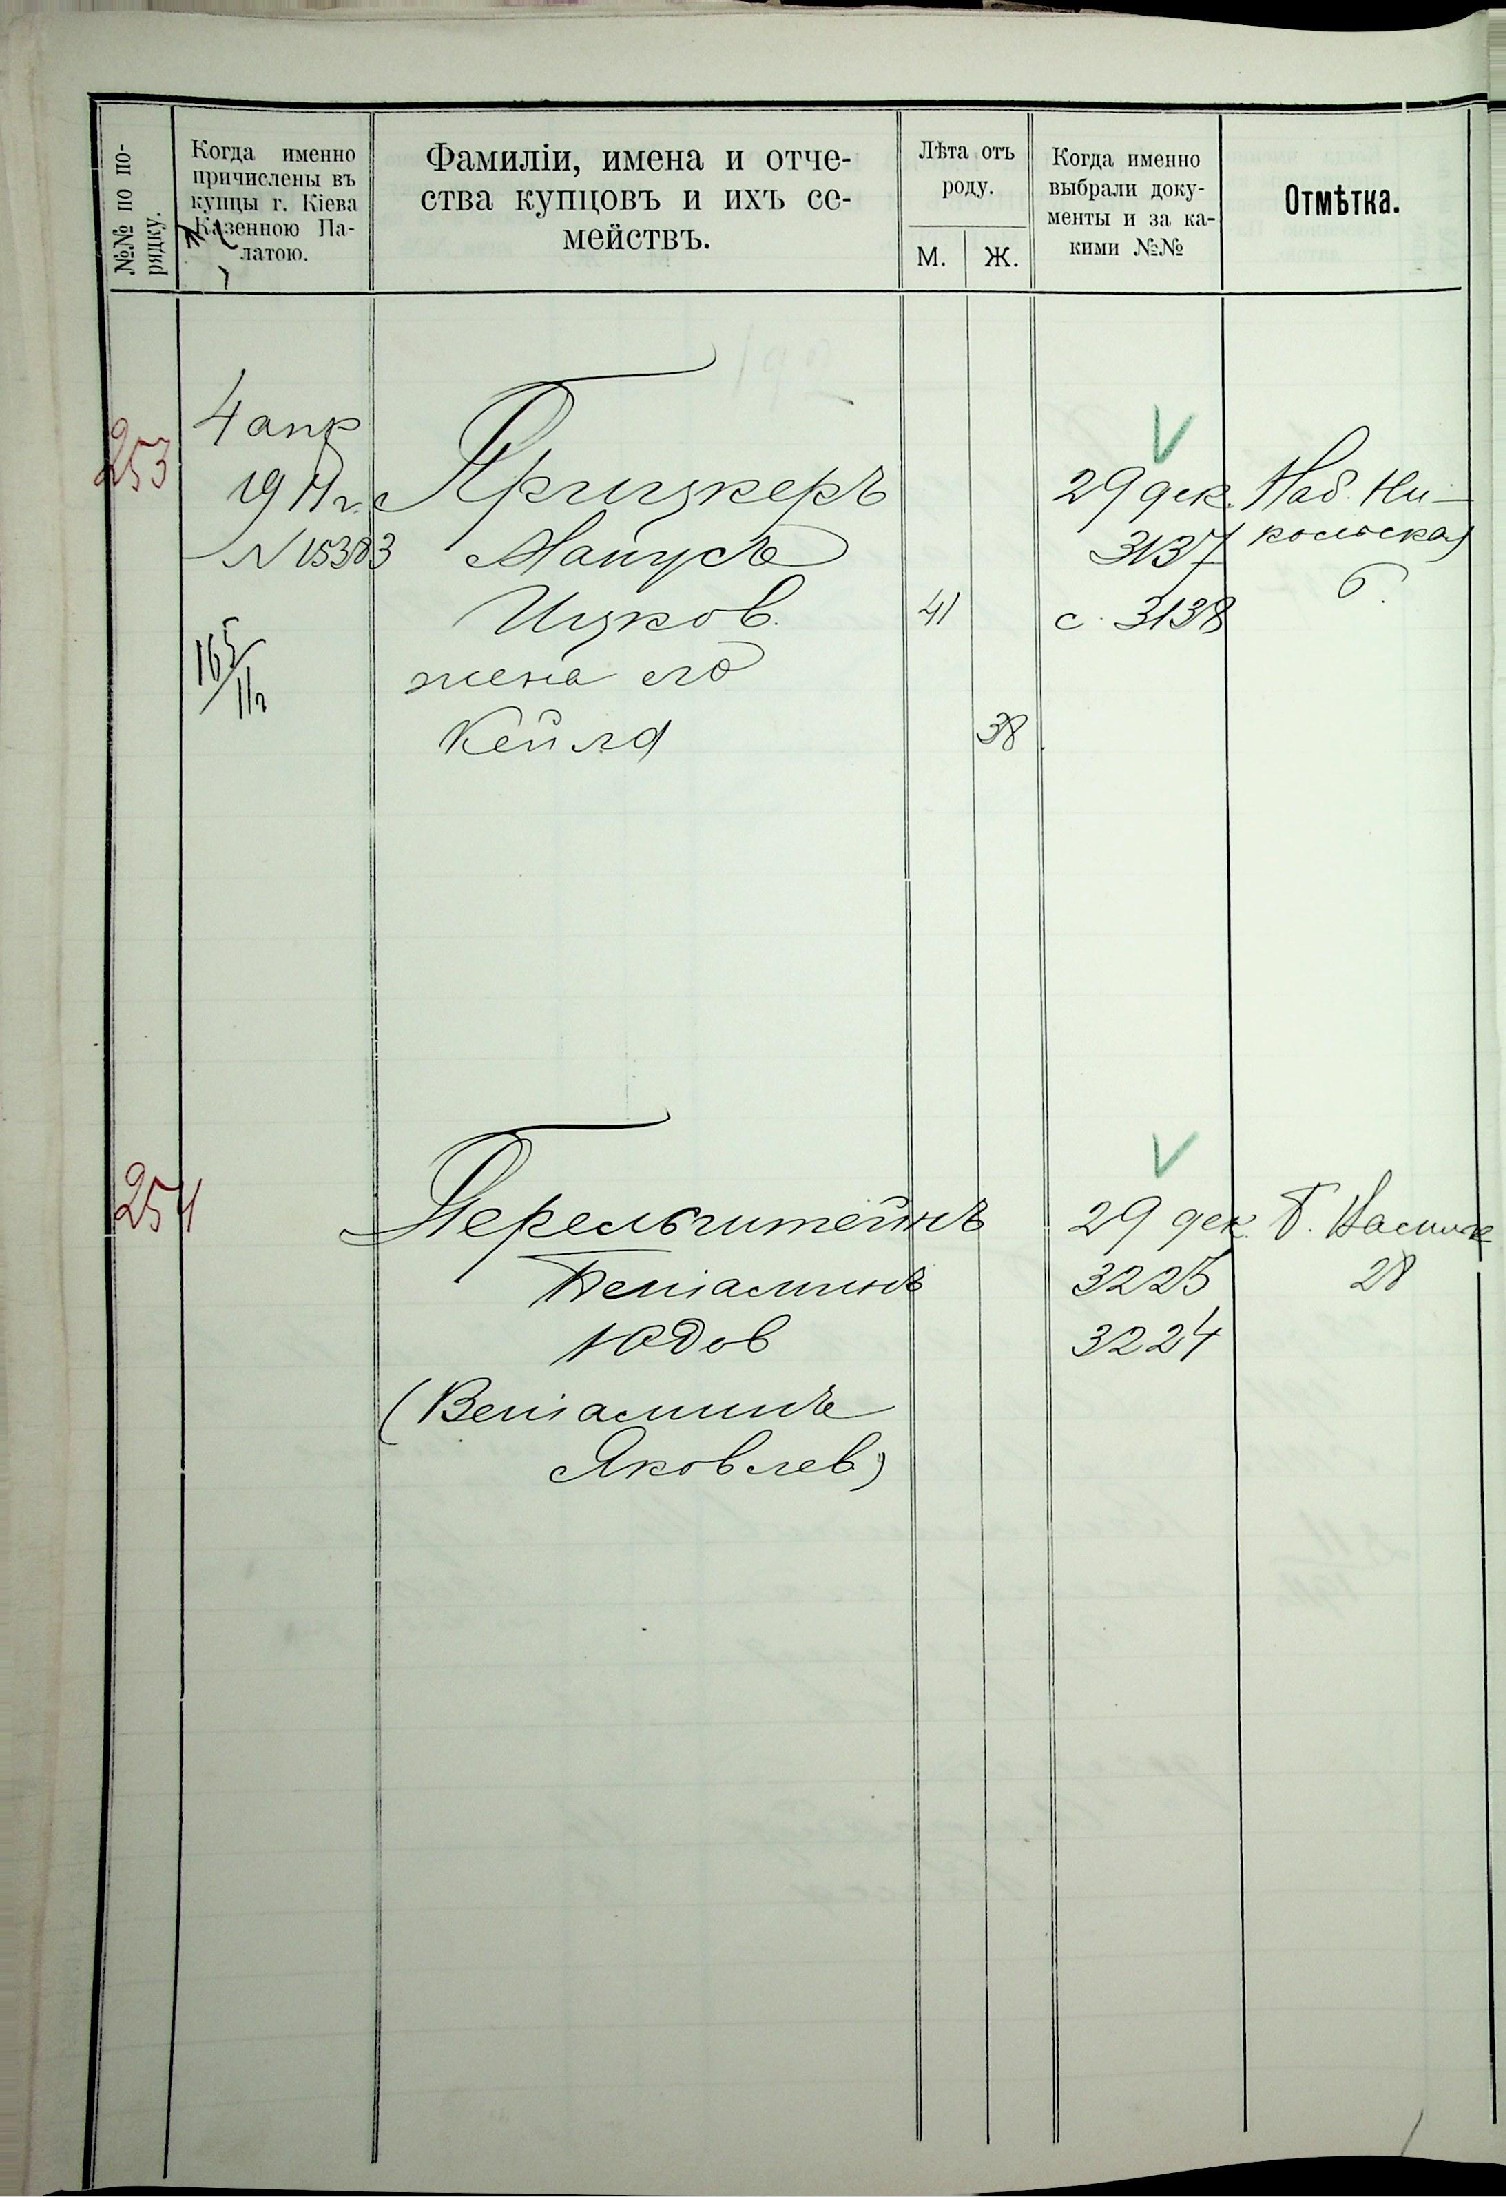 №№ по по-
рядку.
Когда именно
причислены въ
купцы г. Кіева
Казенною Па-
латою.
Фамиліи, имена и отче-
ства купцовъ и ихъ се-
мействъ.
Лѣта отъ
роду.
М. Ж.
Когда именно
выбрали доку-
менты и за ка-
кими №№
Отмѣтка.
253
4 апр
1911 г.
№ 15383
165/11г
Прицкеръ
Мапусъ
Ицков.
жена его
Кейла
41
38
29 дек.
3137
с. 3138
Наб. Ни-
кольская
6.
254
Перельштейнъ
Веніаминъ
Юдов
(Веніаминъ
Яковлев)
29 дек.
3225
3224
Б. Васильк
28